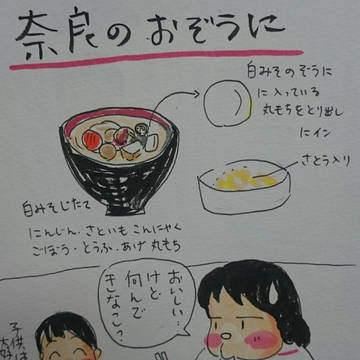 奈良のおぞうに
白みそのぞうに
に入っている
丸もちをとり出し
にイン
さとう入り
白みそじたて
にんじん、さといも こんにゃく
ごぼう・とうふ・あげ 丸もち
おいしい…
けど
何んで
きなこ?
子供は
大好